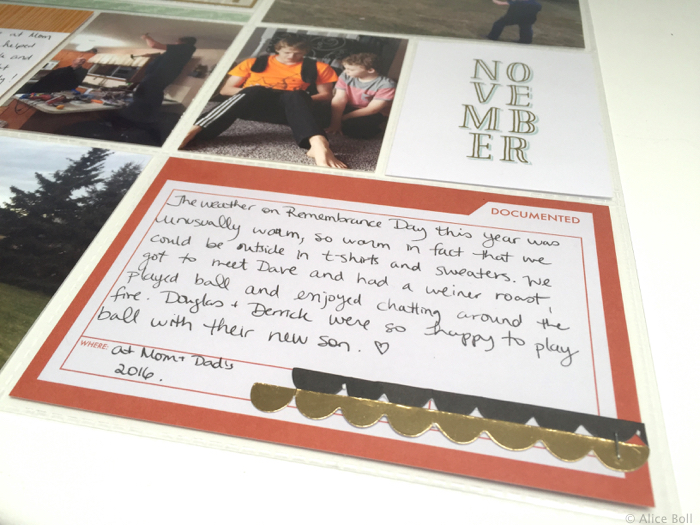 at Mom
helped
and
NO
VE
MB
ER
DOCUMENTED
The weather on Remembrance Day this year was
unusually warm, so warm in fact that we
could be outside in t-shirts and sweaters. We
got to meet Dave and had a weiner roast,
played ball and enjoyed chatting around the
fire. Douglas + Derrick were so happy to play
ball with their new son. ♡
WHERE: at Mom + Dad's
2016.
© Alice Boll